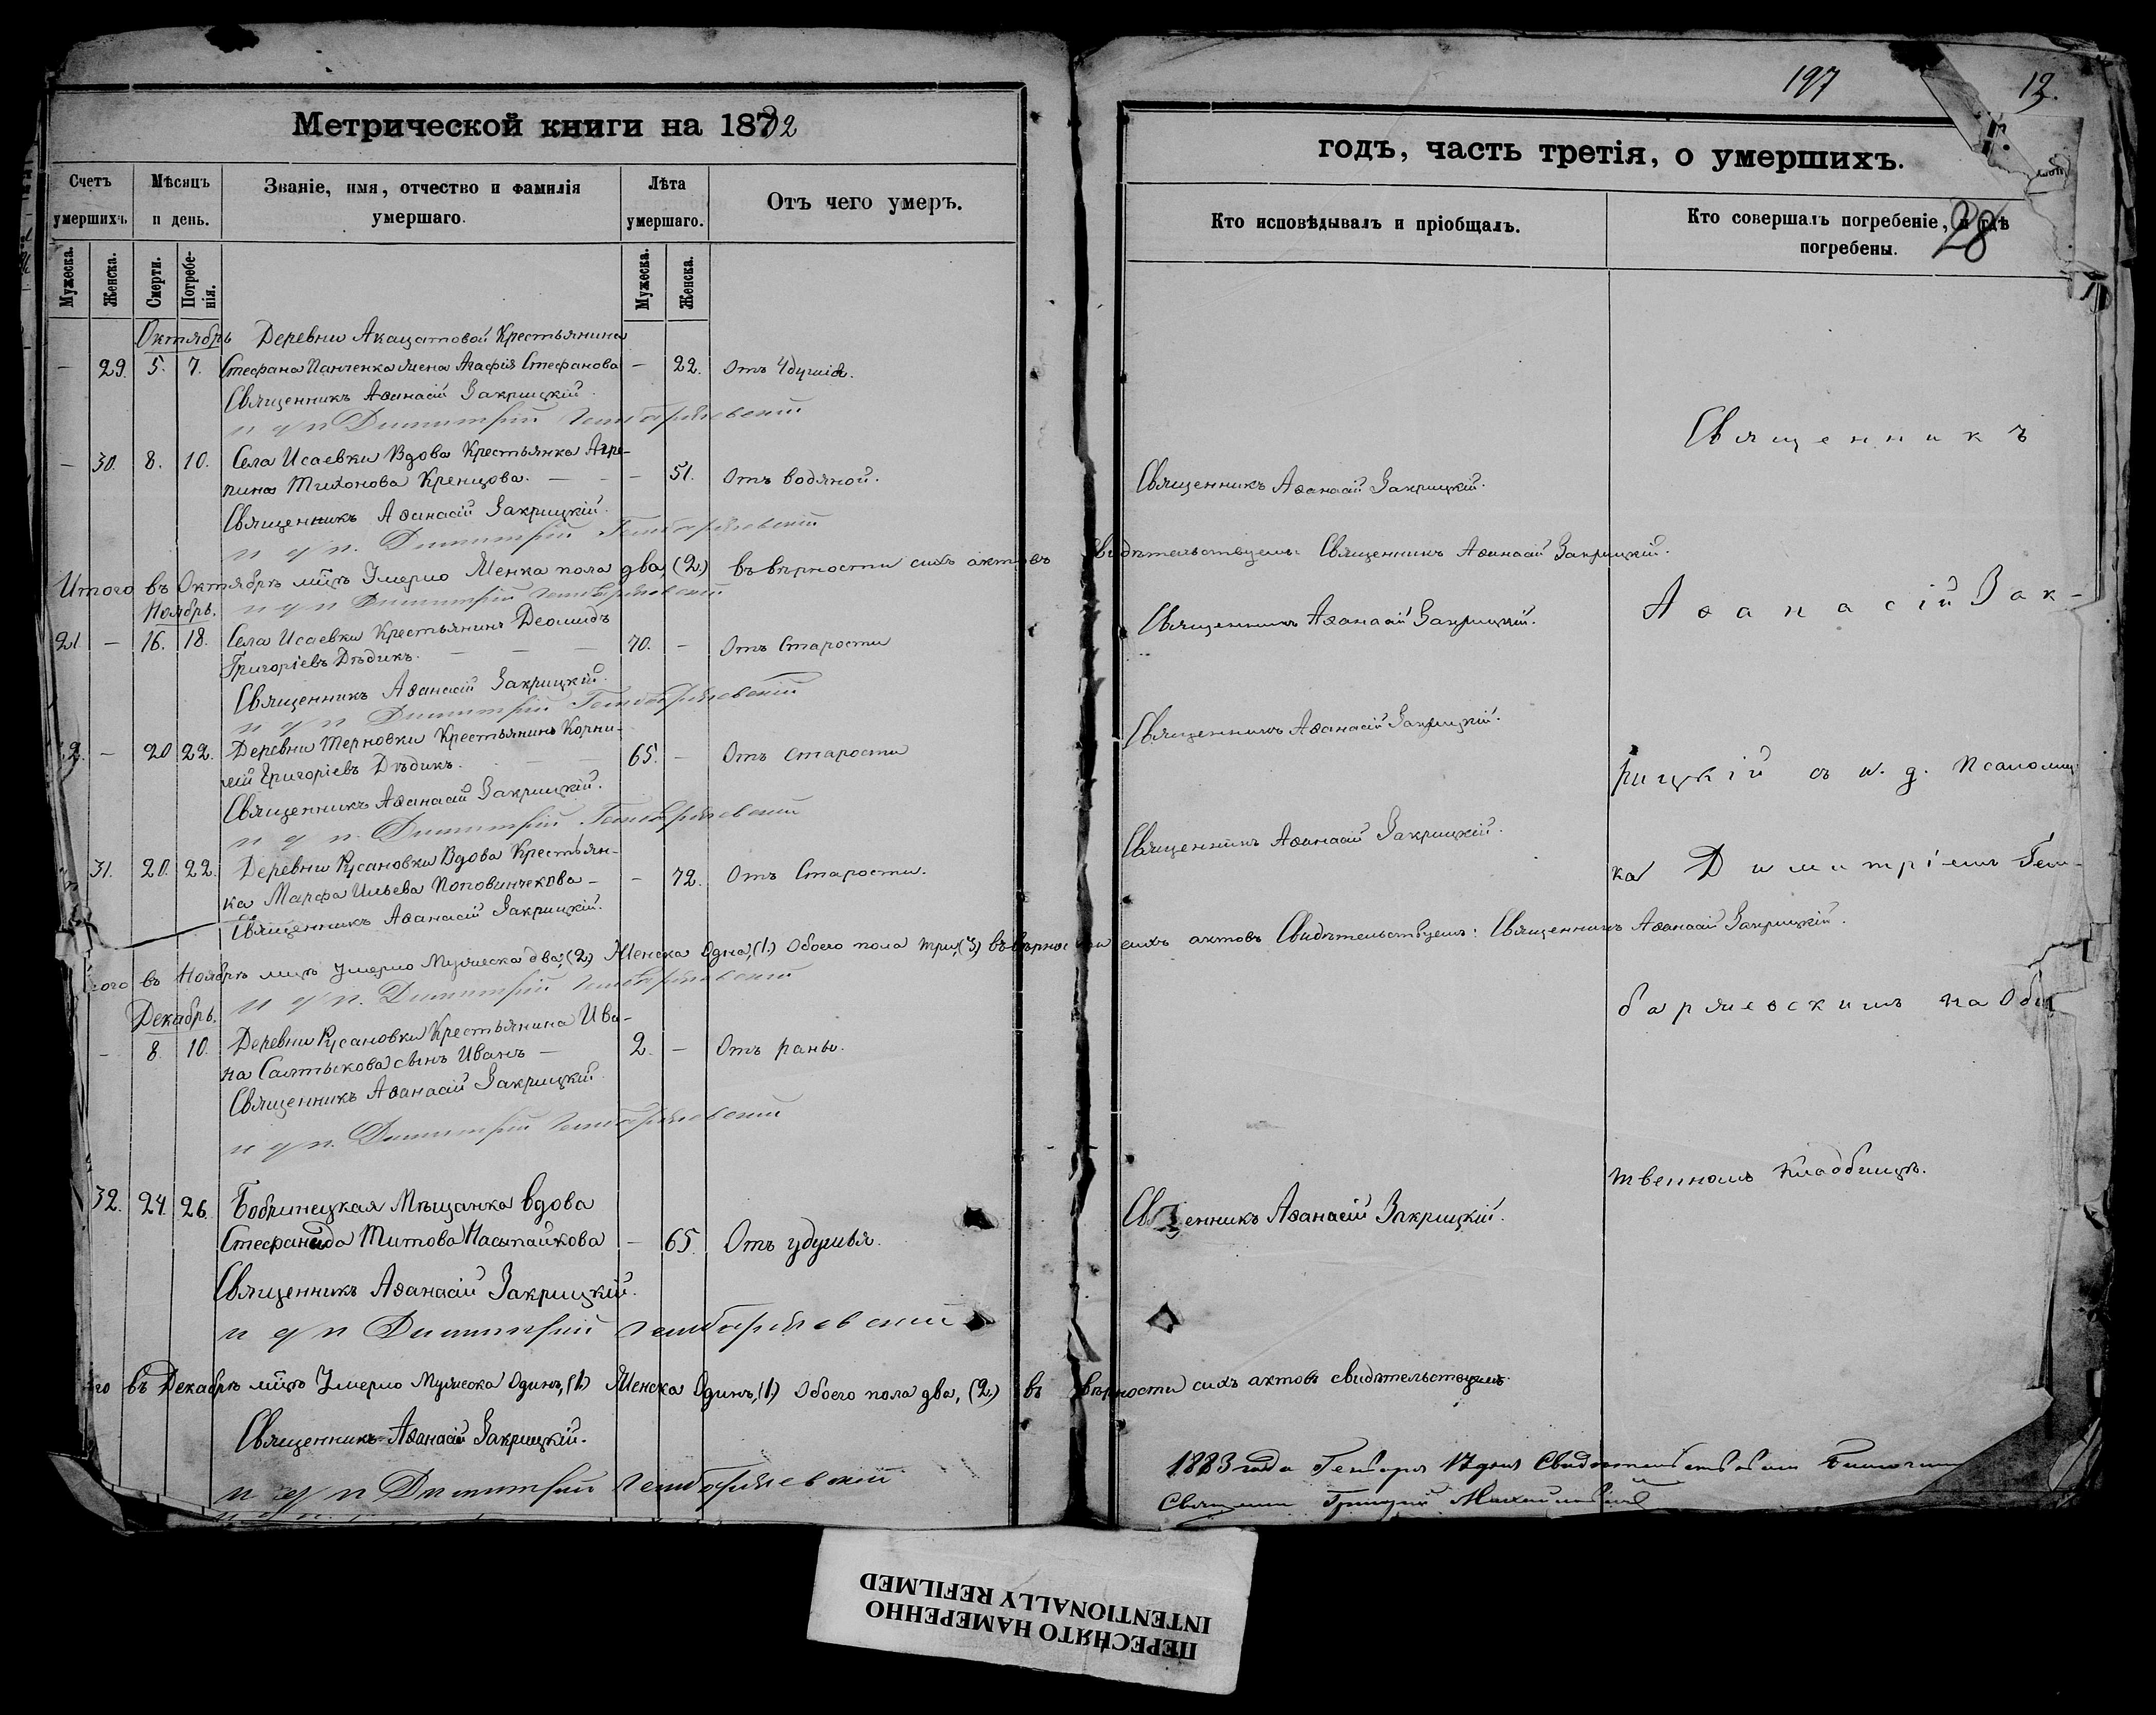 Метрической книги на 1882
Счетъ умершихъ
Мѣсяцъ и день.
Званіе, имя, отчество и фамилія умершаго.
Лѣта умершаго.
Отъ чего умеръ.
Мужеска.
Женска.
Смерти.
Погребе-
нія.
Мужеска.
Женска.
Октябрь Деревни Акацатовой Крестьянина
— 29. 5. 7. Стефана Панченка жена Агафія Стефанова — 22. Отъ Удушія.
Священникъ Аѳанасій Закрицкій.
и д п Димитрій Гембаржевскій
— 30. 8. 10. Села Исаевки Вдова Крестьянка Агре-
пина Тихонова Кренцова. — — — 51. Отъ водяной.
Священникъ Аѳанасій Закрицкій.
и д п. Димитрій Гембаржевскій
Итого въ Октябрѣ мцѣ Умерло Женска пола два, (2) въ вѣрности сихъ актовъ
и д п Димитрій Гембаржевскій
Ноябрь.
21 — 16. 18. Села Исаевки Крестьянинъ Деомидъ 70. — Отъ Старости
Григоріевъ Дѣдикъ. — — —
Священникъ Аѳанасій Закрицкій.
и д п Димитрій Гембаржевскій
— 20 22. Деревни Терновки Крестьянинъ Корни-
лій Григоріевъ Дѣдикъ. — — 65. — Отъ старости
Священникъ Аѳанасій Закрицкій.
и д п. Димитрій Гембаржевскій
31. 20. 22. Деревни Русановки Вдова Крестьян-
ка Марфа Ильева Поповинчекова — — 72. Отъ Старости.
Священникъ Аѳанасій Закрицкій.
въ Ноябрѣ мцѣ умерло Мужеска два, (2) Женска Одна, (1.) Обоего пола три, (3)
и д п. Димитрій Гембаржевскій
Декабрь.
— 8. 10. Деревни Русановки Крестьянина Ива-
на Салтыкова сынъ Иванъ — 2. — Отъ раны.
Священникъ Аѳанасій Закрицкій
и д п. Димитрій Гембаржевскій
32. 24. 26. Бобринецкая Мѣщанка вдова
Стефанида Титова Насыпайкова — 65. Отъ удушья.
Священникъ Аѳанасій Закрицкій.
и д п Димитрій Гембаржевскій
въ Декабрѣ мцѣ Умерло Мужеска Одинъ, (1.) Женска Одинъ, (1.) Обоего пола два, (2.) въ
Священникъ Аѳанасій Закрицкій.
и д п Димитрій Гембаржевскій
197
годъ, часть третія, о умершихъ.
Кто исповѣдывалъ и пріобщалъ.
Кто совершалъ погребеніе, и гдѣ погребены.
28
Священникъ
Священникъ Аѳанасій Закрицкій.
Свидѣтельствуемъ: Священникъ Аѳанасій Закрицкій.
Аѳанасій Зак-
Священникъ Аѳанасій Закрицкій.
Священникъ Аѳанасій Закрицкій.
рицкій съ и. д. Псаломщ
Священникъ Аѳанасій Закрицкій.
ка Димитріемъ Гем-
сихъ актовъ Свидѣтельствуемъ: Священникъ Аѳанасій Закрицкій.
баржевскимъ на Общ
твенномъ Кладбищѣ.
Священникъ Аѳанасій Закрицкій.
вѣрности сихъ актовъ свидѣтельствуемъ
1883 года Генваря 17 дня Свидѣтельствовалъ
Священникъ Григорій
ПЕРЕСНЯТО НАМЕРЕННО
INTENTIONALLY REFILMED